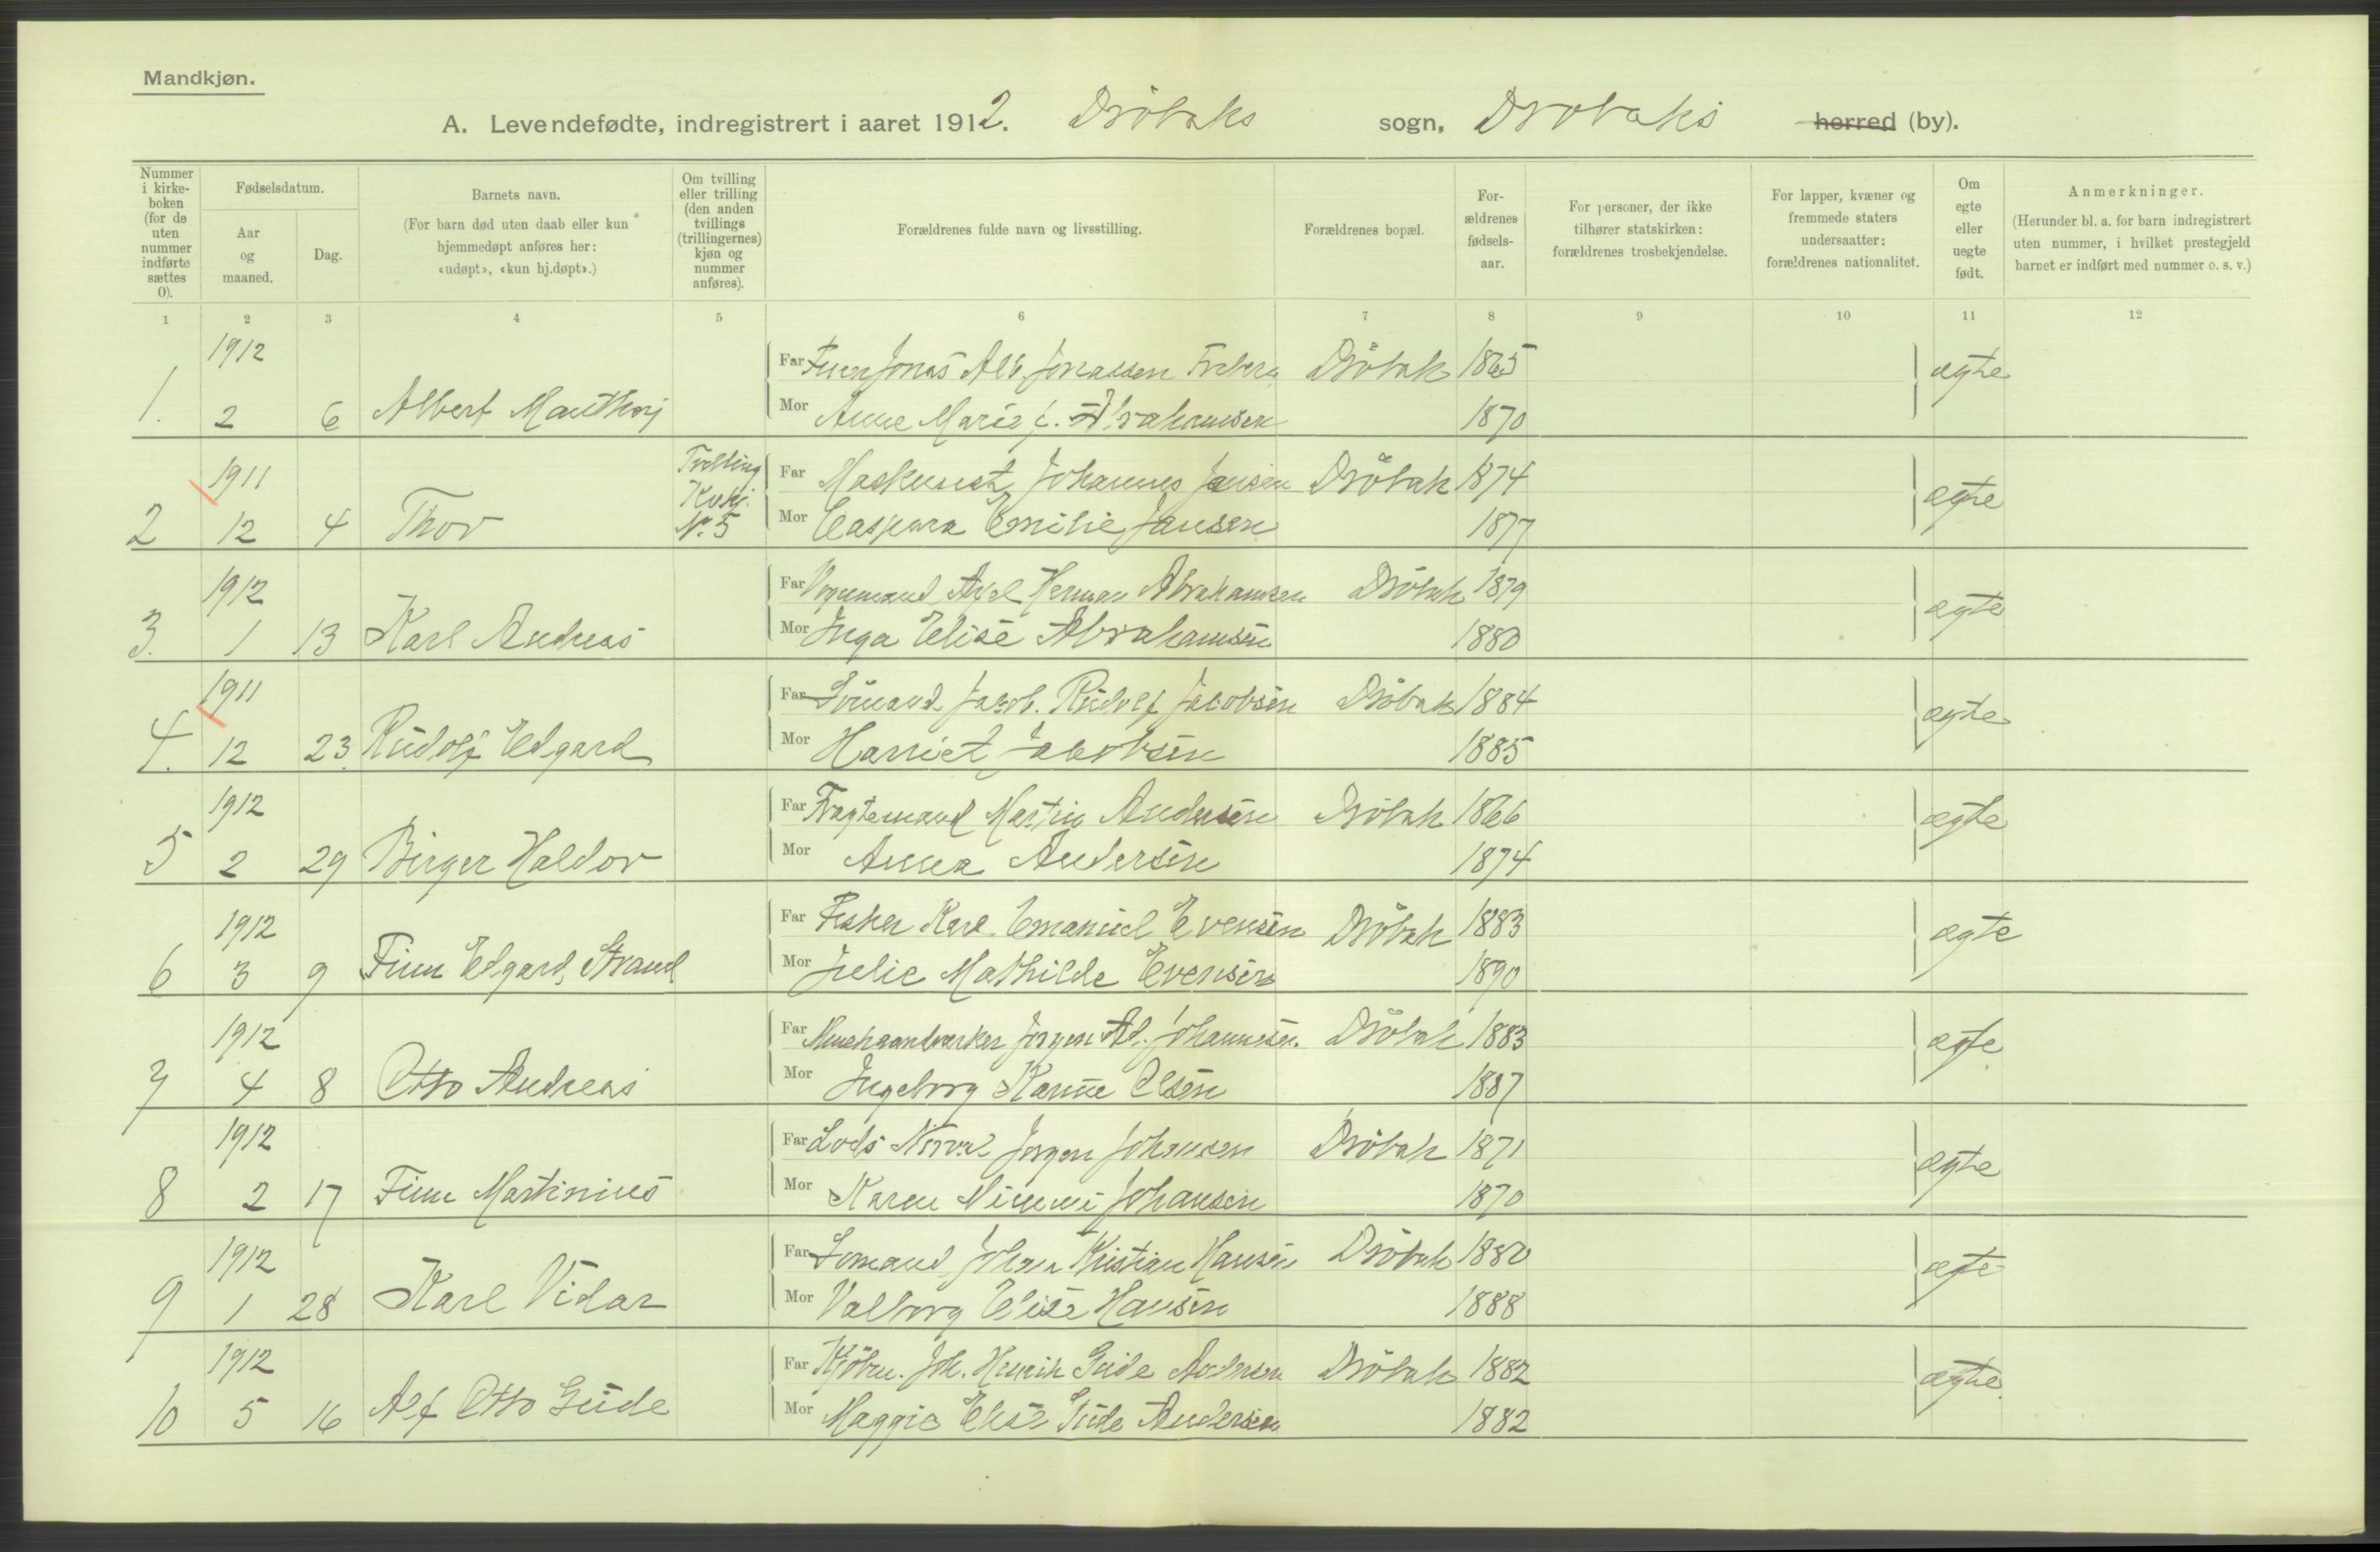 Mandkjøn.
A. Levendefødte, indregistrert i aaret 1912. Drøbaks sogn, Drøbaks herred (by).
Nummer i kirkeboken (for de uten nummer indførte sættes 0).
Fødselsdatum.
Aar og maaned.
Dag.
Barnets navn.
(For barn død uten daab eller kun hjemmedøpt anføres her: «udøpt», «kun hj.døpt».)
Om tvilling eller trilling (den anden tvillings (trillingernes) kjøn og nummer anføres).
Forældrenes fulde navn og livsstilling.
Forældrenes bopæl.
Forældrenes fødselsaar.
For personer, der ikke tilhører statskirken: forældrenes trosbekjendelse.
For lapper, kvæner og fremmede staters undersaatter: forældrenes nationalitet.
Om egte eller uegte født.
Anmerkninger.
(Herunder bl. a. for barn indregistrert uten nummer, i hvilket prestegjeld barnet er indført med nummer o. s. v.)
1 2 3 4 5 6 7 8 9 10 11 12
1912 Far Jonas Alb. Jonassen Drøbak 1865 ægte
1. 2 6 Albert Manthey Mor Anne Marie f. Abrahamsen 1870
1911 Tvilling Kvkj. Far Maskinist Johannes Jansen Drøbak 1874 ægte
2 12 4 Thor Nr. 5 Mor Caspara Emilie Jansen 1877
1912 Far Vognmand Axel Herman Abrahamsen Drøbak 1879 ægte
3. 1 13 Karl Andreas Mor Inga Elise Abrahamsen 1880
1911 Far Sømand Jacob Rudolf Jacobsen Drøbak 1884 ægte
4. 12 23 Rudolf Edgard Mor Harriet Jacobsen 1885
1912 Far Fragtemand Martin Andersen Drøbak 1866 ægte
5 2 29 Birger Haldor Mor Anna Andersen 1874
1912 Far Fisker Karl Emanuel Evensen Drøbak 1883 ægte
6 3 9 Finn Edgard Strand Mor Julie Mathilde Evensen 1890
1912 Far Murhaandverker Jørgen Ad. Johannesen. Drøbak 1883 ægte
7 4 8 Otto Andreas Mor Ingeborg Karine Olsen 1887
1912 Far Lods Norval Jørgen Johansen Drøbak 1871 ægte
8 2 17 Finn Martinius Mor Karen Minni Johansen 1870
1912 Far Sømand Johan Kristian Hansen Drøbak 1880 ægte
9 1 28 Karl Vidar Mor Valborg Elise Hansen 1888
1912 Far Kjøbm. Joh. Henrik Gude Andersen Drøbak 1882 ægte
10 5 16 Alf Otto Gude Mor Maggie Elise Gude Andersen 1882